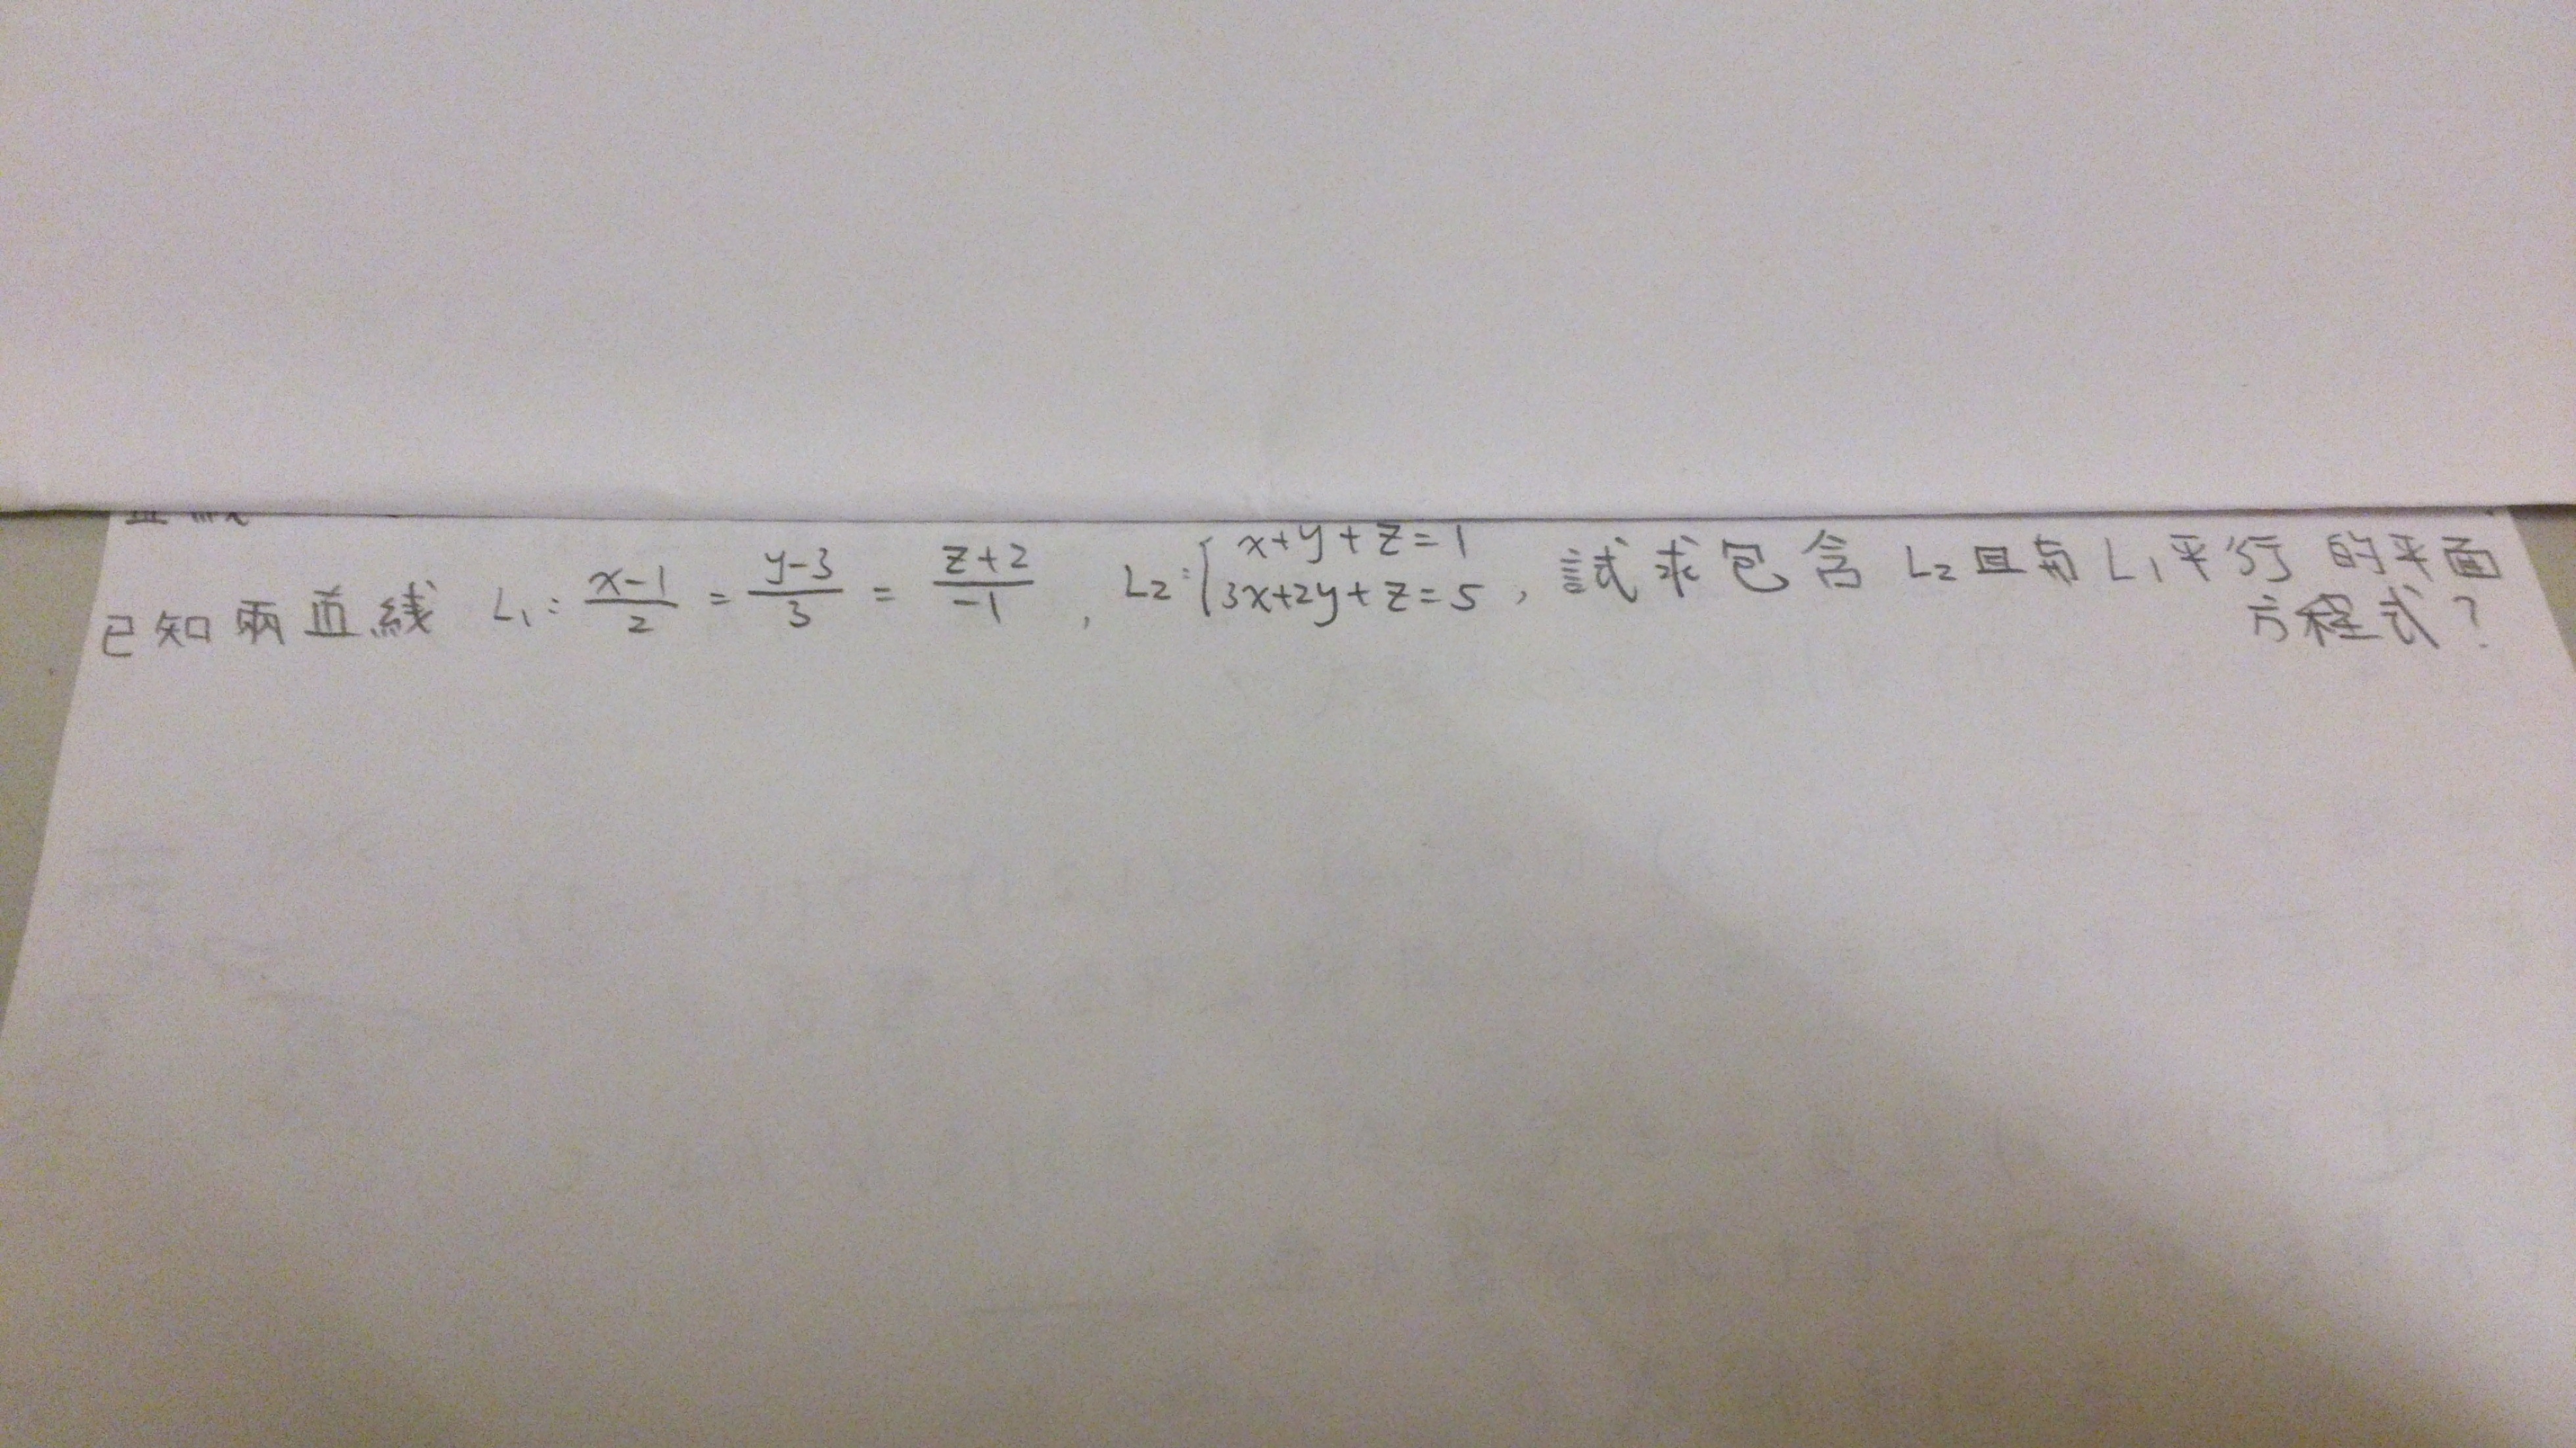 已知兩直線 L₁: \frac{x-1}{2} = \frac{y-3}{3} = \frac{z+2}{-1} , L₂: { x+y+z=1 , 3x+2y+z=5 , 試求包含 L₂ 且與 L₁ 平行的平面
方程式?